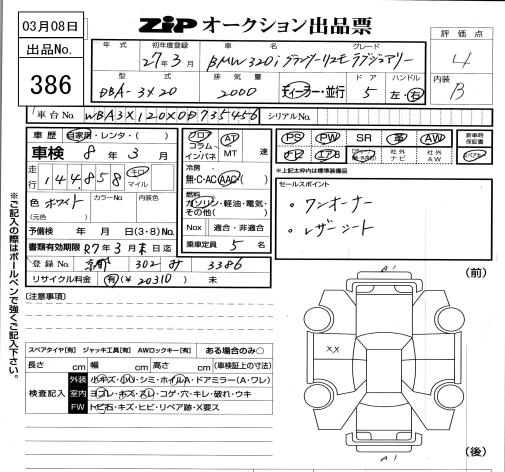 03月08日
ZIP オークション出品票
出品No.
386
年式 初年度登録 車名 グレード
27年3月 BMW320i グランツーリスモ ラグジュアリー
評価点
4
型式 排気量 ドア ハンドル
DBA-3X20 2000 ディーラー・並行 5 左・右
内装
B
車台No. WBA3X120X0D735456 シリアルNo.
車歴 自家用・レンタ・( )
車検 8年3月
走行 144,858 キロ マイル
色 ホワイト カラーNo. 内装色
(元色)
予備検 年 月 日(3・8)No.
書類有効期限 R7年3月末日迄
登録No. 京都 302 み 3386
リサイクル料金 有(¥20310) 未
フロア コラム インパネ AT MT 速
冷房
無・C・AC・AAC
燃料
ガソリン・軽油・電気・その他( )
Nox 適合・非適合
乗車定員 5名
PS PW SR 革 AW
新車時保証書
ナビ エアB 社外ナビ 社外AW
※上記太枠内は標準装備品
セールスポイント
・ワンオーナー
・レザーシート
※ご記入の際はボールペンで強くご記入下さい。
[注意事項]
(前)
A1
XX
スペアタイヤ[有] ジャッキ工具[有] AWロックキー[有] ある場合のみ○
長さ cm 幅 cm 高さ cm (車検証上の寸法)
検査記入
外装 小キズ・小U・シミ・ホイルA・ドアミラー(A・ワレ)
室内 ヨゴレ・キズ・スレ・コゲ・穴・キレ・破れ・ウキ
FW トビ石・キズ・ヒビ・リペア跡・X要ス
A1
(後)